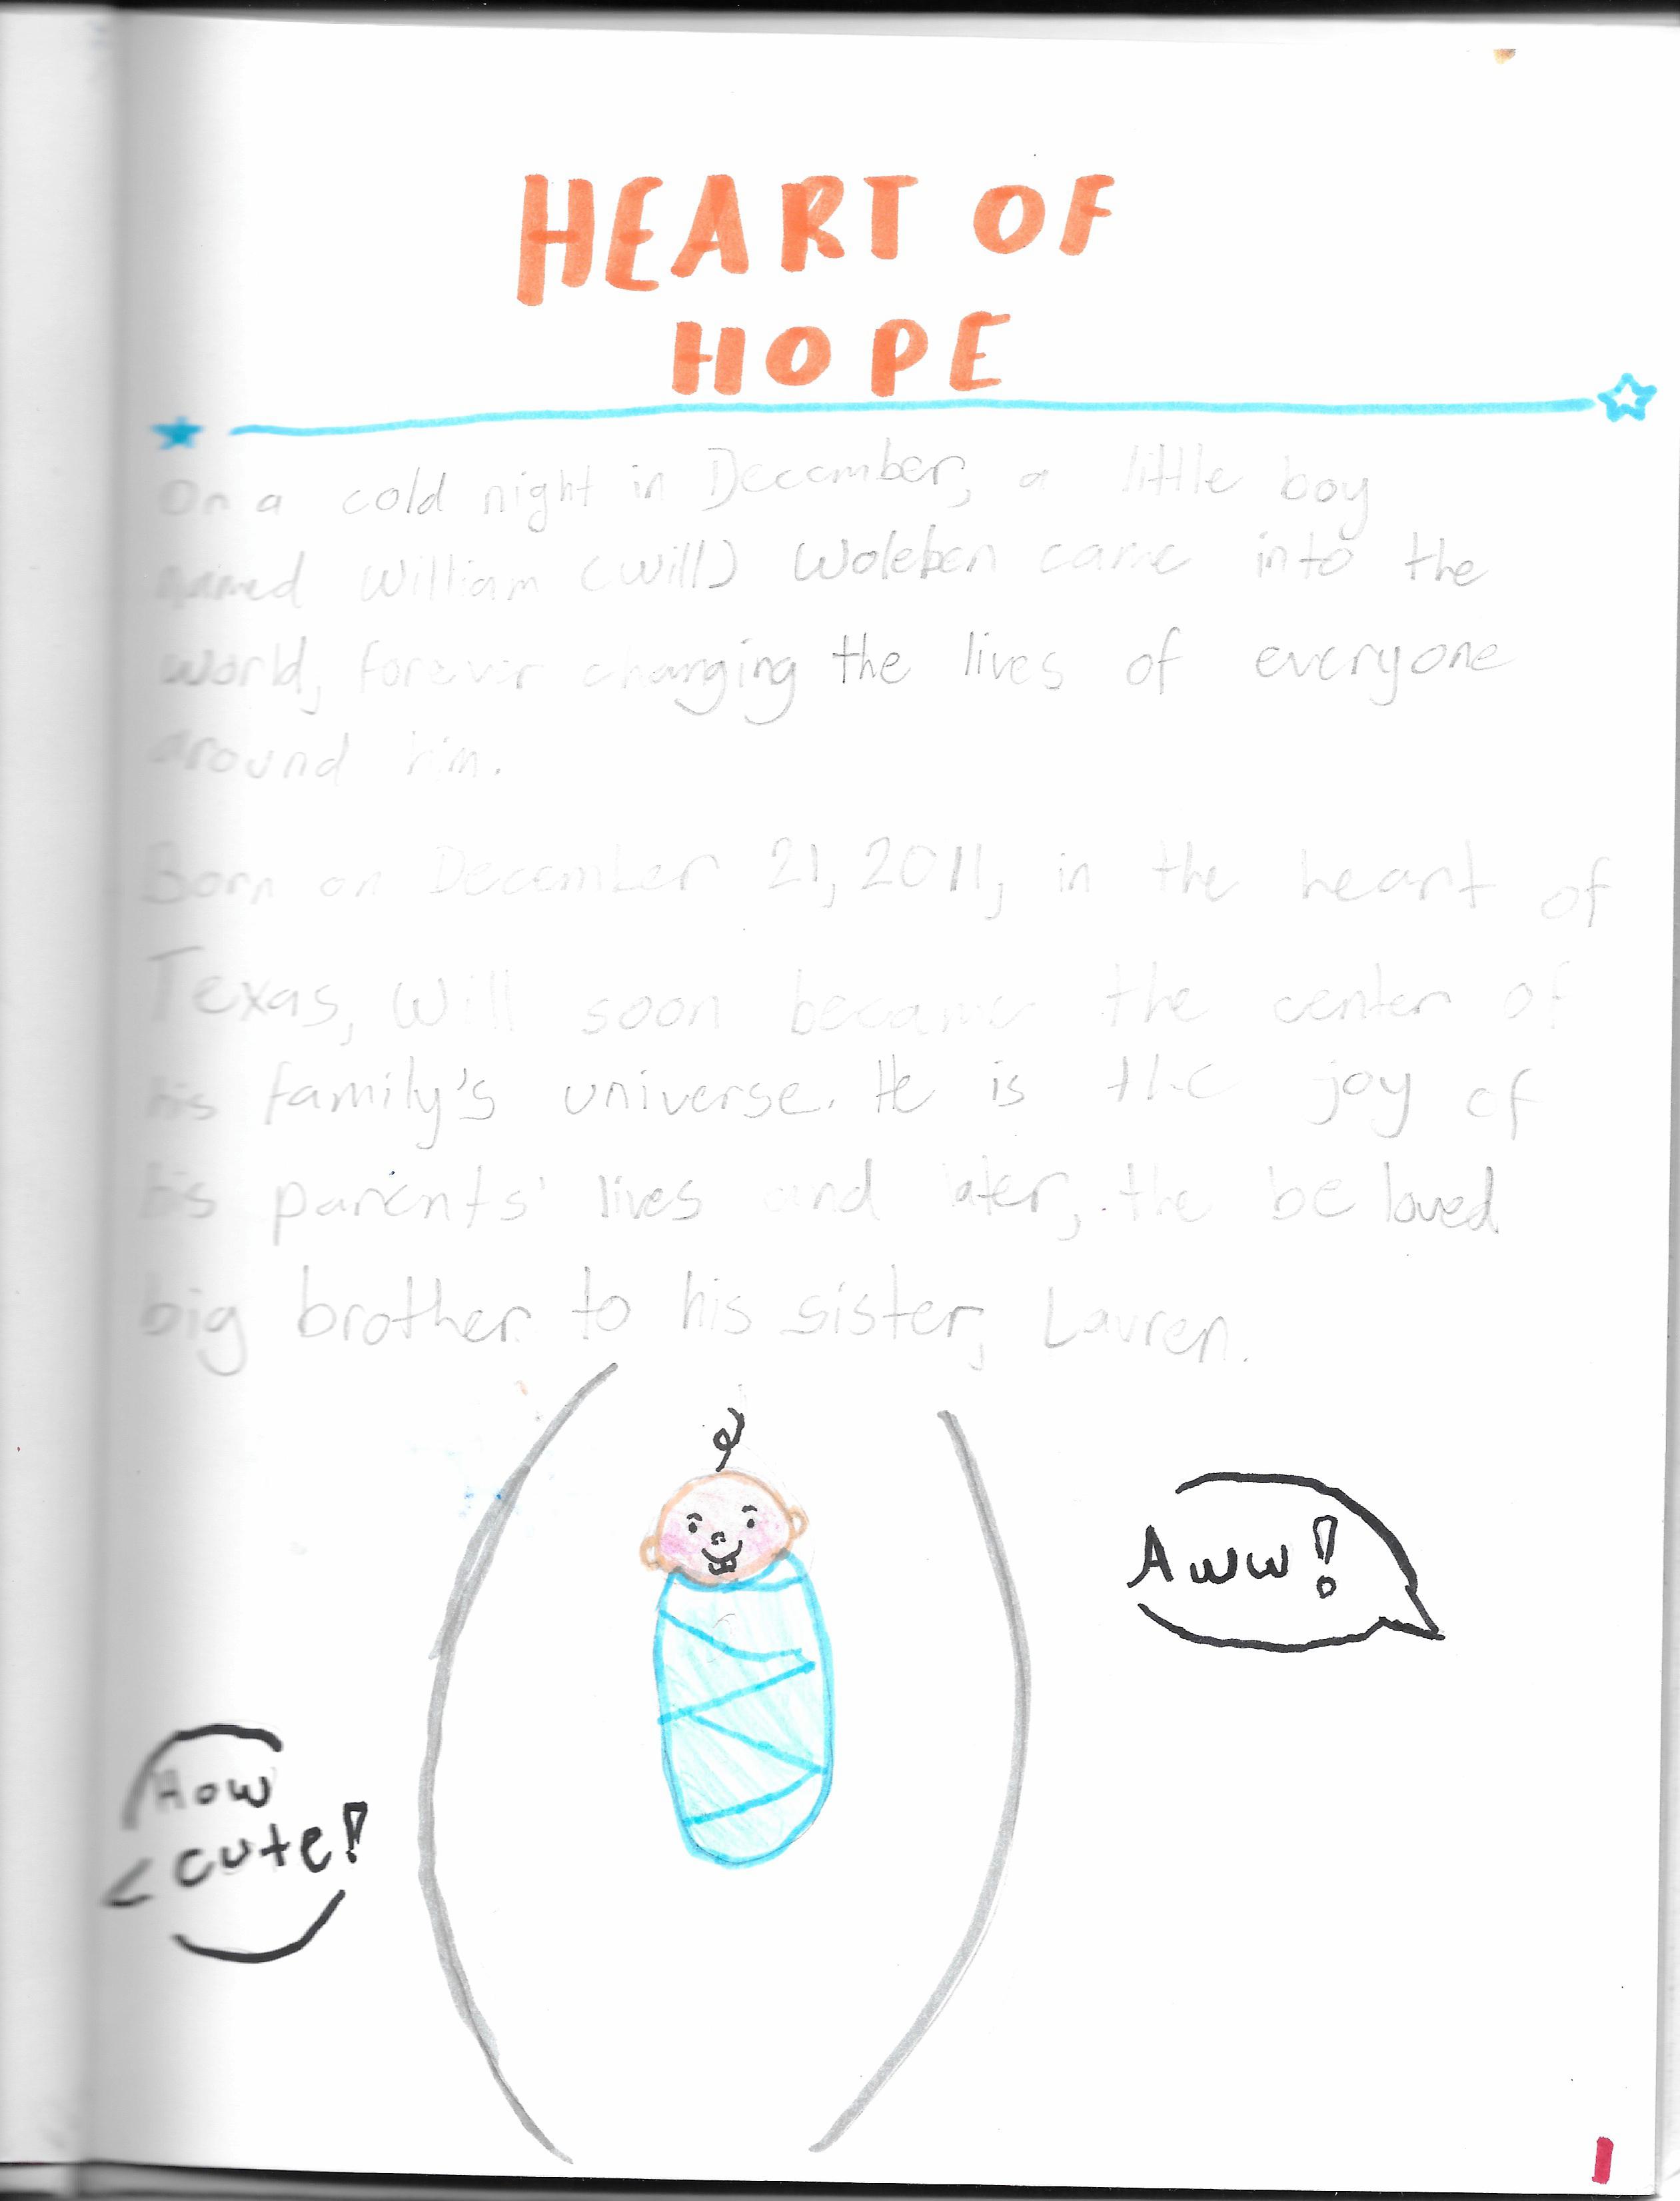 HEART OF
HOPE
On a cold night in December, a little boy
named William (Will) Woleben came into the
world, forever changing the lives of everyone
around him.
Born on December 21, 2011, in the heart of
Texas, Will soon became the center of
his family's universe. He is the joy of
his parents' lives and later, the beloved
big brother to his sister, Lauren.
Aww!
How
cute!
1